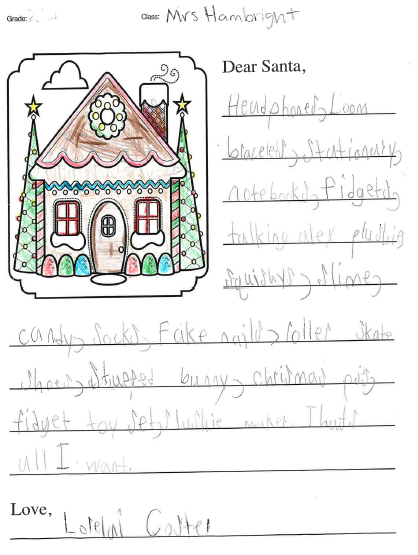 Grade: 2
Class: Mrs Hambright
Dear Santa,
Headphones, Loom
bracelets, stationary,
notebooks, fidgets,
talking
squishys, slime,
candy, socks, Fake nails, roller skate
shoes, stuffed bunny, christmas
fidget toy set, slushie maker. Thats
all I want.
Love,